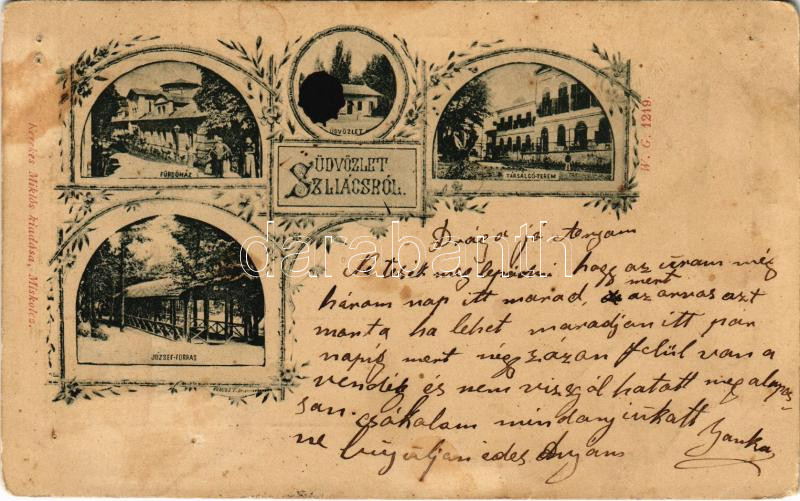 FÜRDŐHÁZ
ÜDVÖZLET
TÁRSALGÓ-TEREM
ÜDVÖZLET
SZLIÁCSRÓL.
JÓZSEF-FORRÁS
Kerekes Miklós kiadása, Miskolcz.
W. G. 1219.
darabanth
Drága jó Anyám
Ne tessék meg lepődni hogy az uram még
három nap itt marad, mert az orvos azt
monta ha lehet maradjan itt pár
napig mert négyszázan felül van a
vendég és nem vizsgálhatott meg alapos-
san. csókolom mindanyiukatt
ne búsuljan édes Anyám Janka